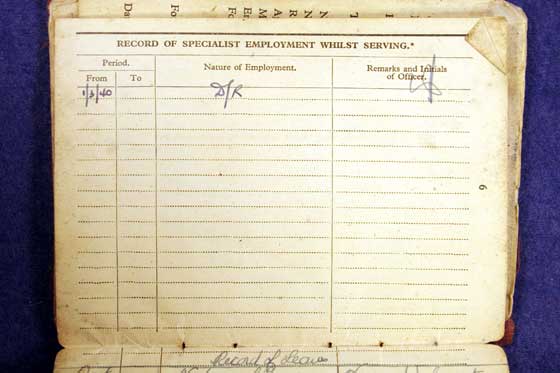 RECORD OF SPECIALIST EMPLOYMENT WHILST SERVING.*
Period.
Nature of Employment.
Remarks and Initials
of Officer.
From To
1/3/40 D/R
6
Record of Leaves